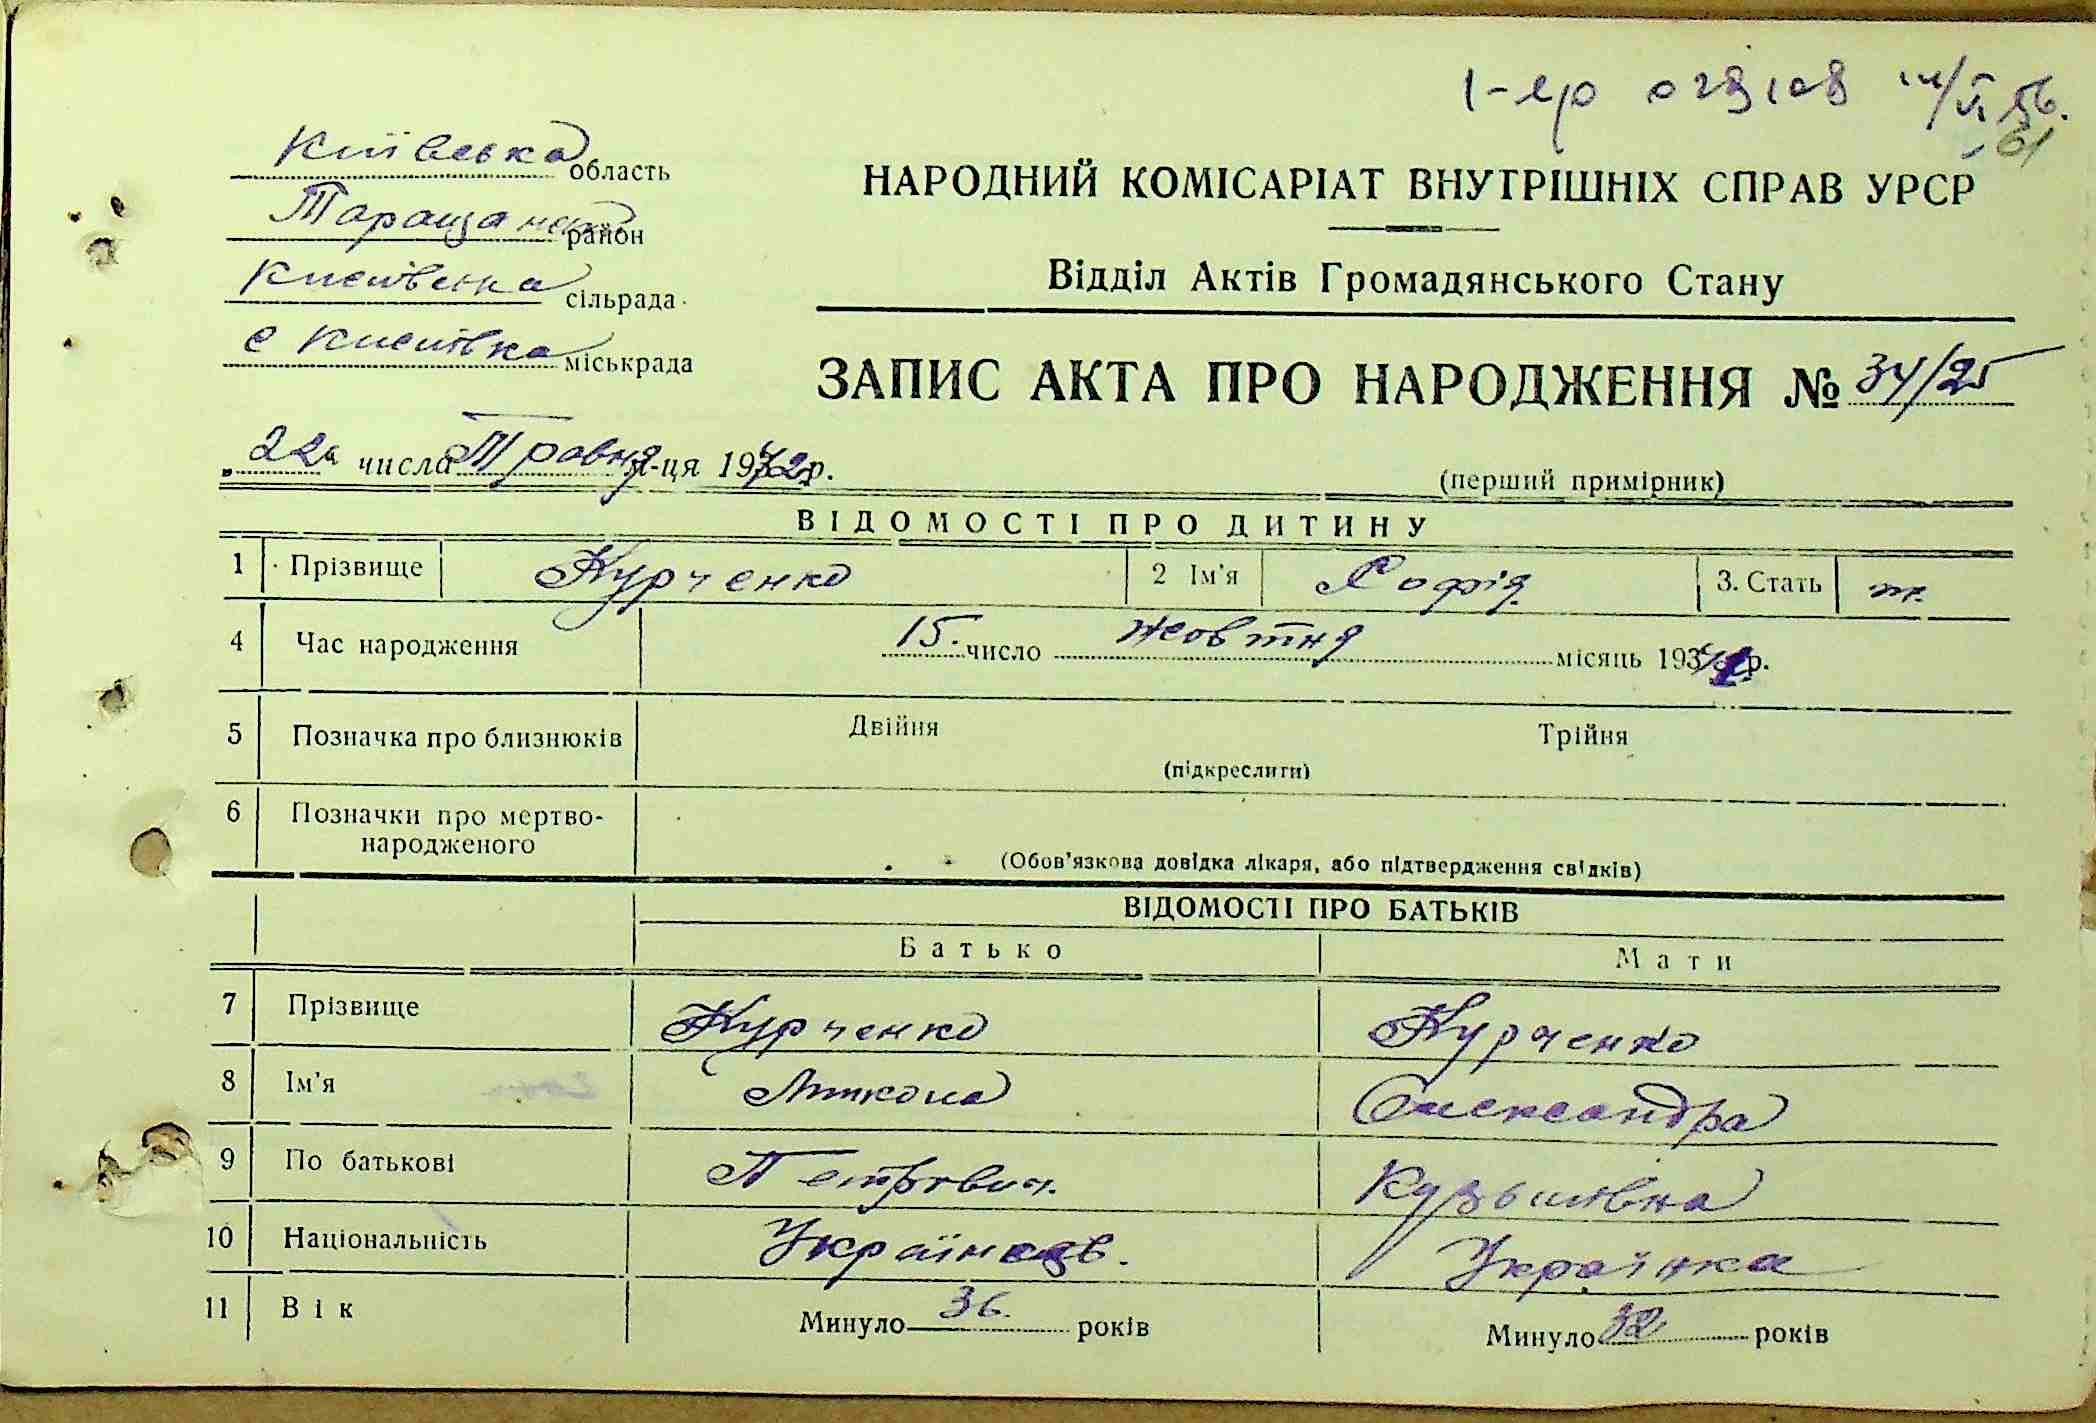 Київська область
Таращанський район
Кислівська сільрада
с Кислівка міськрада
61
НАРОДНИЙ КОМІСАРІАТ ВНУТРІШНІХ СПРАВ УРСР
Відділ Актів Громадянського Стану
ЗАПИС АКТА ПРО НАРОДЖЕННЯ № 34/25
„22а числа Травня м-ця 1942р.
(перший примірник)
ВІДОМОСТІ ПРО ДИТИНУ
1 Прізвище Курченко 2 Ім'я Софія 3. Стать ж.
4 Час народження 15. число жовтня місяць 1941р.
5 Позначка про близнюків Двійня Трійня
(підкреслити)
6 Позначки про мертво-
народженого
(Обов'язкова довідка лікаря, або підтвердження свідків)
ВІДОМОСТІ ПРО БАТЬКІВ
Батько Мати
7 Прізвище Курченко Курченко
8 Ім'я Микола Олександра
9 По батькові Петрович. Кузьмівна
10 Національність Українець. Українка
11 Вік Минуло 36. років Минуло 32 років